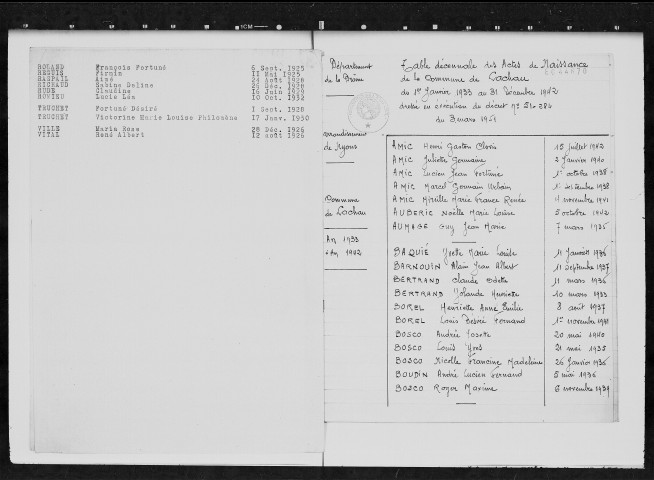 ROLAND François Fortuné 6 Sept. 1925
Firmin 11 Mai 1925
RASPAIL Aimé 24 Août 1928
RICAUD Sabine Déline 26 Déc. 1928
RUDE Claudine 16 Juin 1929
Lucie Léa 10 Oct. 1932
TRUCHET Fortuné Désiré 1 Sept. 1928
TRUCHET Victorine Marie Louise Philomène 17 Janv. 1930
VILLE Marie Rose 28 Déc. 1926
VITAL René Albert 12 août 1926
Département de la Drôme
arrondissement de Nyons
Commune de Lachau
An 1933
à An 1942
Table décennale des Actes de Naissance
de la Commune de Lachau
du 1er Janvier 1933 au 31 Décembre 1942
dressée en exécution du décret n° 51-284
du 3 mars 1951
AMIC Henri Gaston Clovis 15 juillet 1942
AMIC Juliette Germaine 2 Janvier 1940
AMIC Lucien Jean 1er octobre 1938
AMIC Marcel Germain Urbain septembre 1938
AMIC Mireille Marie France Renée 11 novembre 1941
AUBERIC Noëlle Marie Louise 5 octobre 1942
AUMAGE Guy Jean Marie 7 mars 1935
BAQUIÉ Yvette Marie Louise 11 Janvier 1936
BARNOUIN Alain Jean Albert 11 septembre 1937
BERTRAND Claude Odette 11 mars 1936
BERTRAND Yolande Henriette 10 mars 1933
BOREL Henriette Anne Emilie 8 août 1937
BOREL Louis Désiré Fernand 1er novembre
BOSCO Andrée Josette 20 mai 1940
BOSCO Louis Yves 21 mai 1935
BOSCO Nicolle Francine Madeleine 26 Janvier 1936
BOUDIN André Lucien Fernand 5 mai 1936
BOSCO Roger Maxime 6 novembre 1939